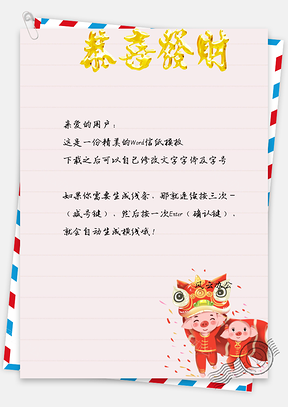 恭喜發財
亲爱的用户：
这是一份精美的Word信纸模板
下载之后可以自己修改文字字体及字号
如果你需要生成线条，那就连续按三次-
（减号键），然后按一次Enter（确认键），
就会自动生成横线哦！